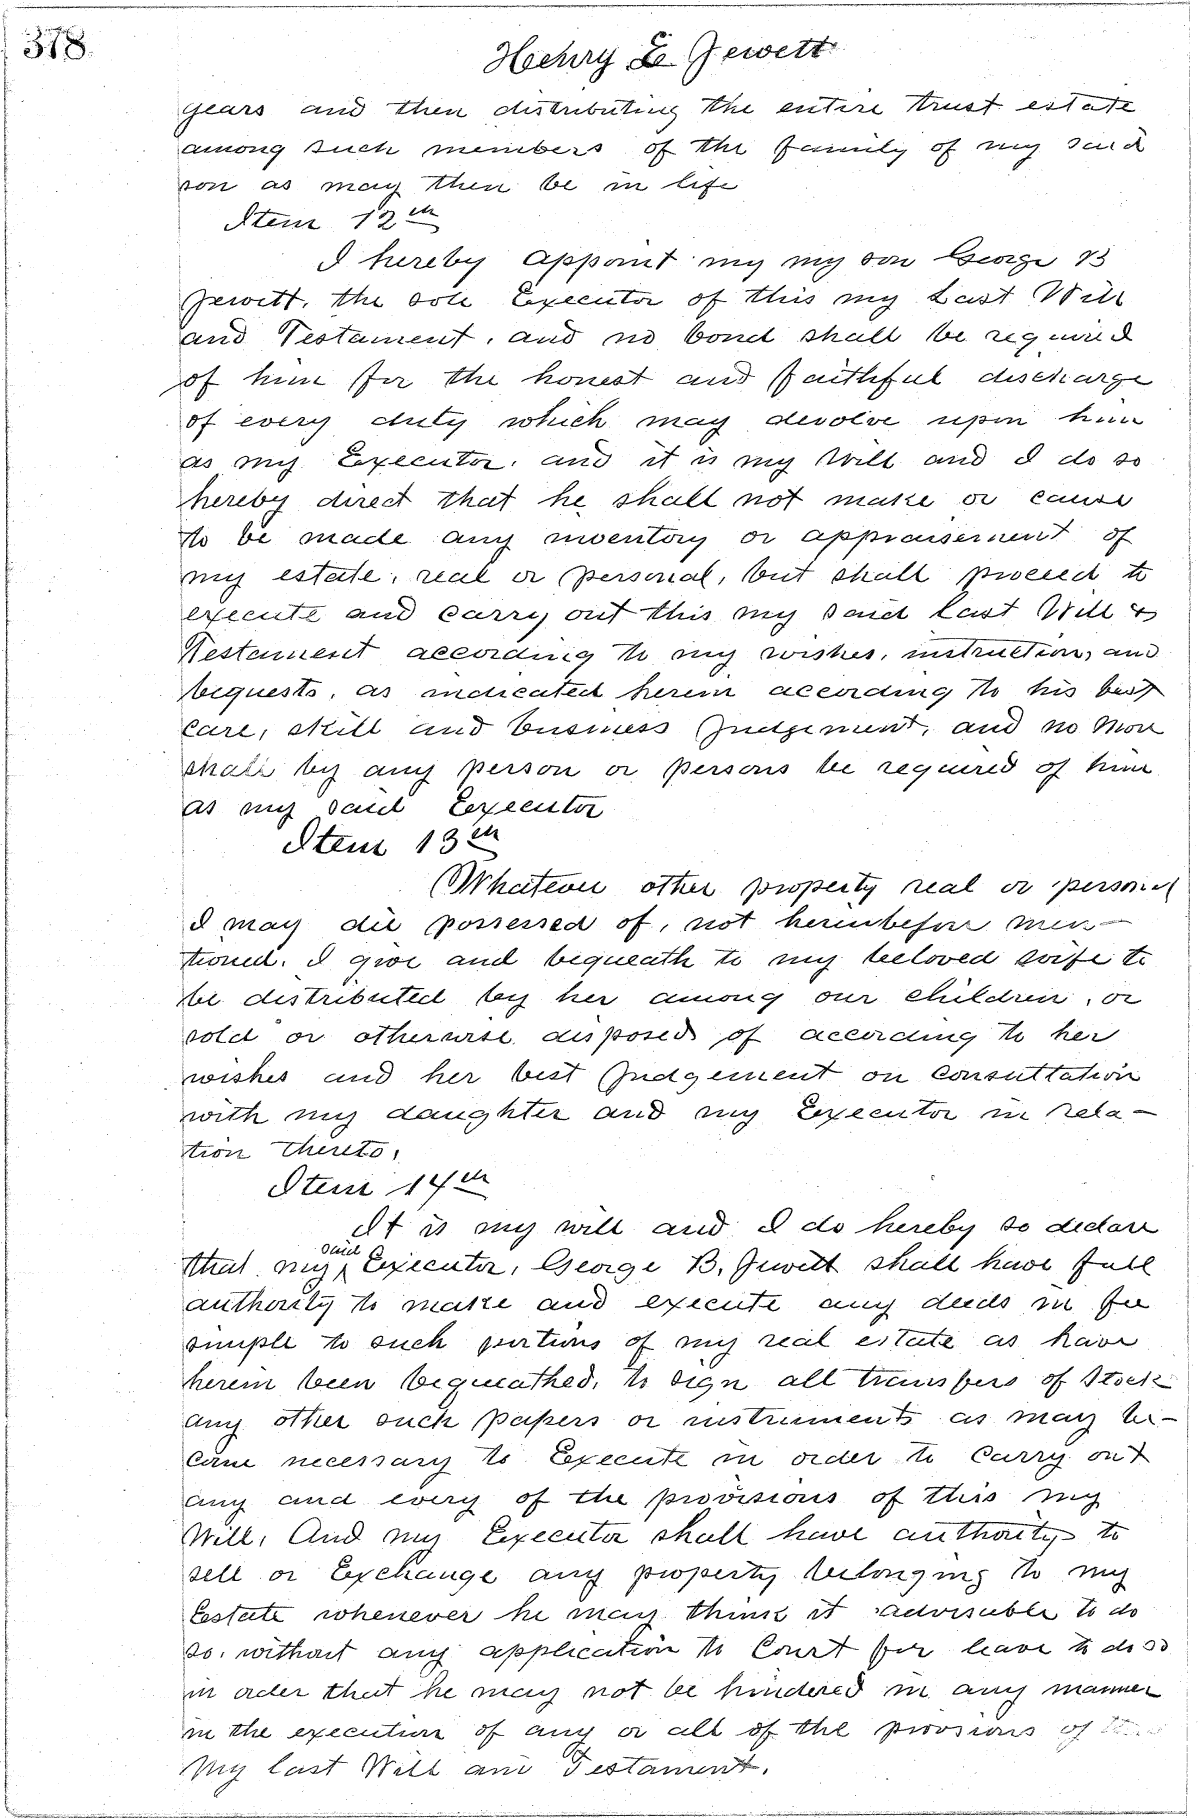 378
Henry L Jewett
years and then distributing the entire trust estate
among such members of the family of my said
son as may then be in life
Item 12th
I hereby appoint my my son George B
Jewett, the sole Executor of this my Last Will
and Testament, and no bond shall be required
of him for the honest and faithful discharge
of every duty which may devolve upon him
as my Executor, and it is my Will and I do so
hereby direct that he shall not make or cause
to be made any inventory or appraisement of
my estate, real or personal, but shall proceed to
execute and carry out this my said last Will &
Testament according to my wishes, instructions, and
bequests, as indicated herein according to his best
care, skill and business Judgement, and no more
shall by any person or persons be required of him
as my said Executor
Item 13th
Whatever other property real or personal
I may die possessed of, not hereinbefore men-
tioned. I give and bequeath to my beloved wife to
be distributed by her among our children, or
sold or otherwise disposed of according to her
wishes and her best Judgement on consultation
with my daughter and my Executor in rela-
tion thereto.
Item 14th
It is my will and I do hereby so declare
that my said Executor, George B. Jewett shall have full
authority to make and execute any deeds in fee
simple to such portions of my real estate as have
herein been bequeathed, to sign all transfers of Stock
any other such papers or instruments as may be-
come necessary to Execute in order to carry out
any and every of the provisions of this my
Will, And my Executor shall have authority to
sell or Exchange any property belonging to my
Estate whenever he may think it advisable to do
so, without any application to Court for leave to do so
in order that he may not be hindered in any manner
in the execution of any or all of the provisions of this
My last Will and Testament.